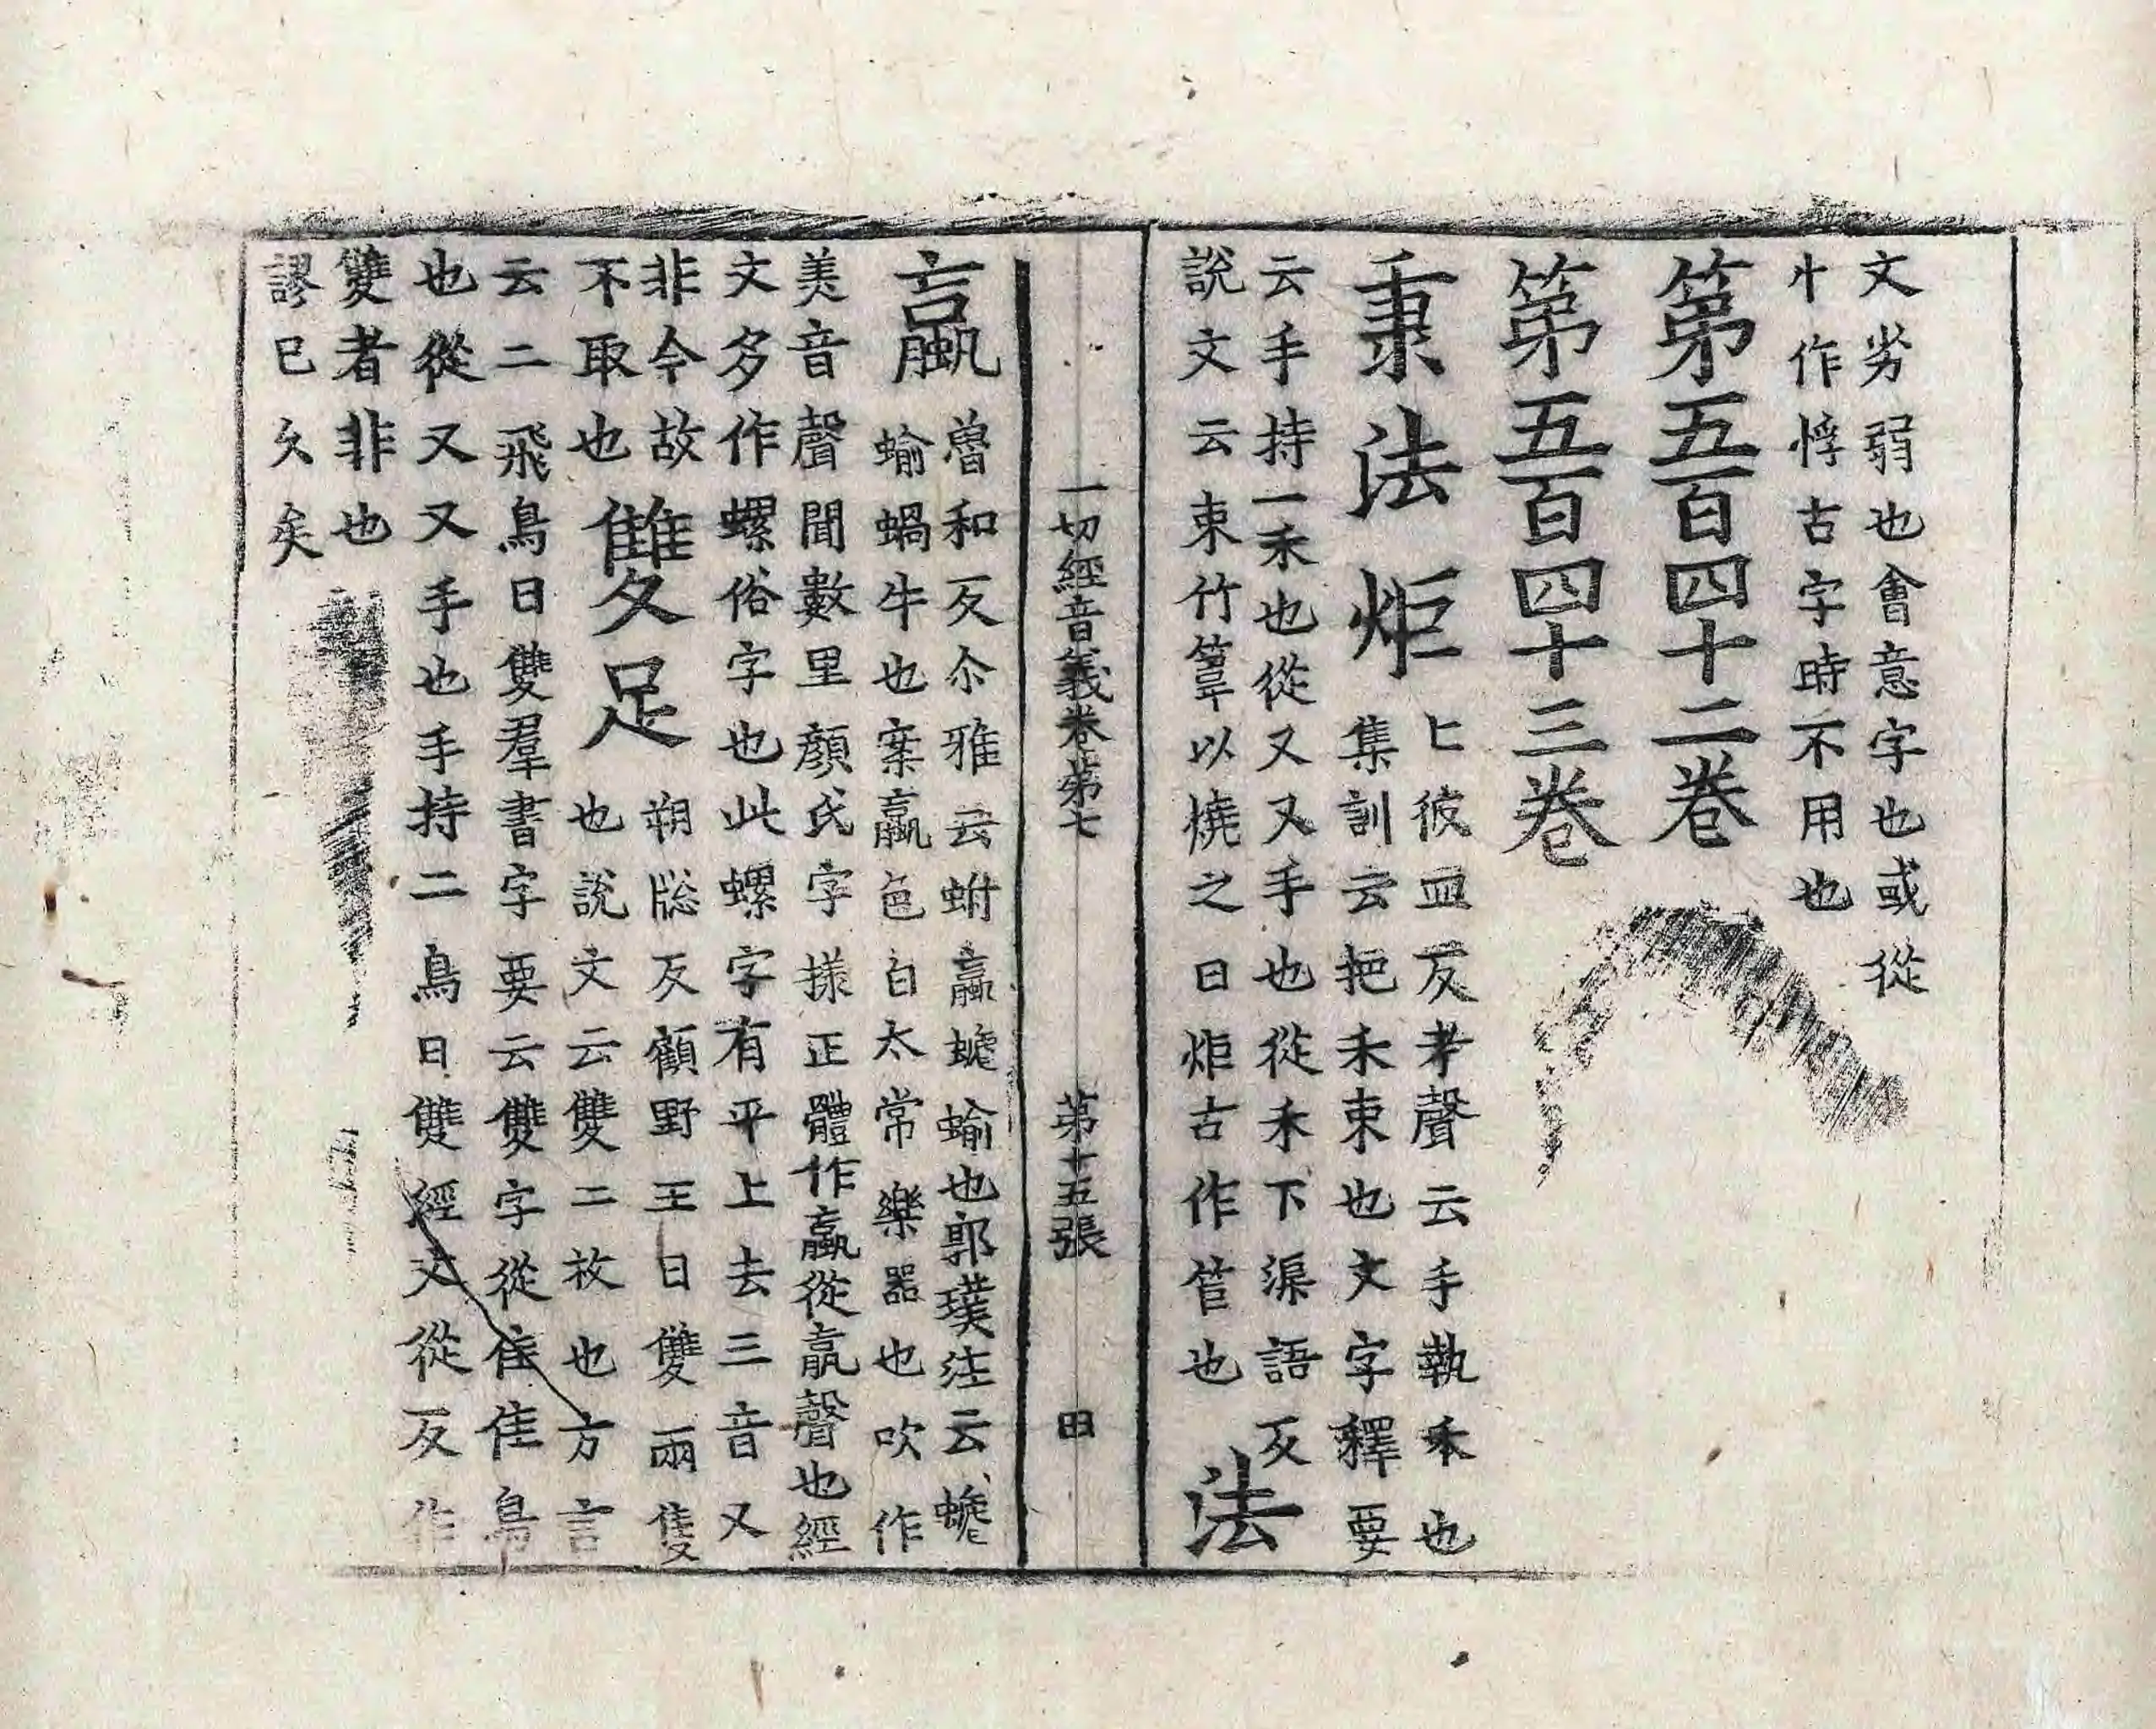 文劣弱也會意字也或從
忄作悙古字時不用也
第五百四十二卷
第五百四十三卷
秉法炬
上彼皿反考聲云手執禾也
集訓云把禾束也文字釋要
云手持一禾也從又又手也從禾下渠語反
說文云束竹䈠以燒之曰炬古作苣也
法
一切經音義卷第七 第十五張 田
蠃
魯和反尒雅云蚹蠃螔蝓也郭璞注云螔
蝓蝸牛也案蠃色白太常樂器也吹作
美音聲聞數里顏氏字㨾正體作蠃從𣎆聲也經
文多作螺俗字也此螺字有平上去三音又
非今故
不取也
雙
足
朔㸜反顧野王曰雙兩隻
也說文云雙二枚也方言
云二飛鳥曰雙羣書字要云雙字從隹隹鳥
也從又又手也手持二鳥曰雙經文從反作
䨥者非也
謬已久矣